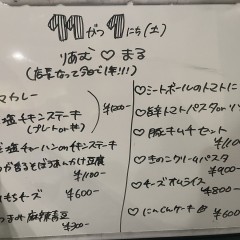 11がつ1にち(土)
りあむ♡まる
(店長なって今日で1年!!!)
マカレー
塩チキンステーキ
(プレートor丼)
¥1200-
塩チャーハンのチキンステーキ
¥1100-
あんかけ豆腐
¥1100-
もちチーズ
¥600-
麻辣青豆
¥300-
♡ミートボールのトマトに
♡トマトパスタor
♡豚キムチセット
¥1100-
♡きのこクリームパスタ
¥900-
♡チーズオムライス
¥800-
♡にんじんケーキ
¥600-